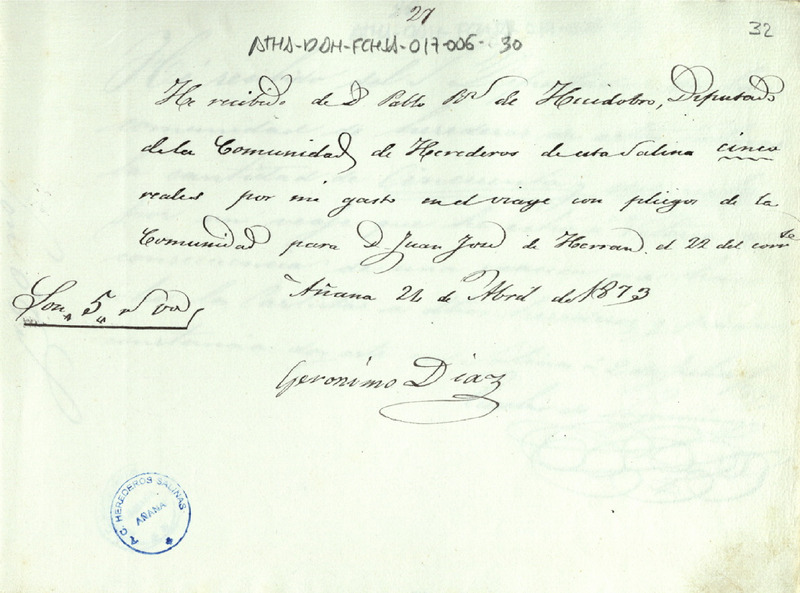 27
32
ATHA-DAH-FCHSA-017-006-30
He recibido de D. Pablo Rz de Huidobro, Diputado
de la Comunidad de Herederos de esta Salina cinco
reales por mi gasto en el viage con pliegos de la
Comunidad para D. Juan José de Herran el 22 del corrte
Añana 24 de Abril de 1873
Son 5 rs von
Geronimo Diaz
A. C. HEREDEROS SALINAS
AÑANA